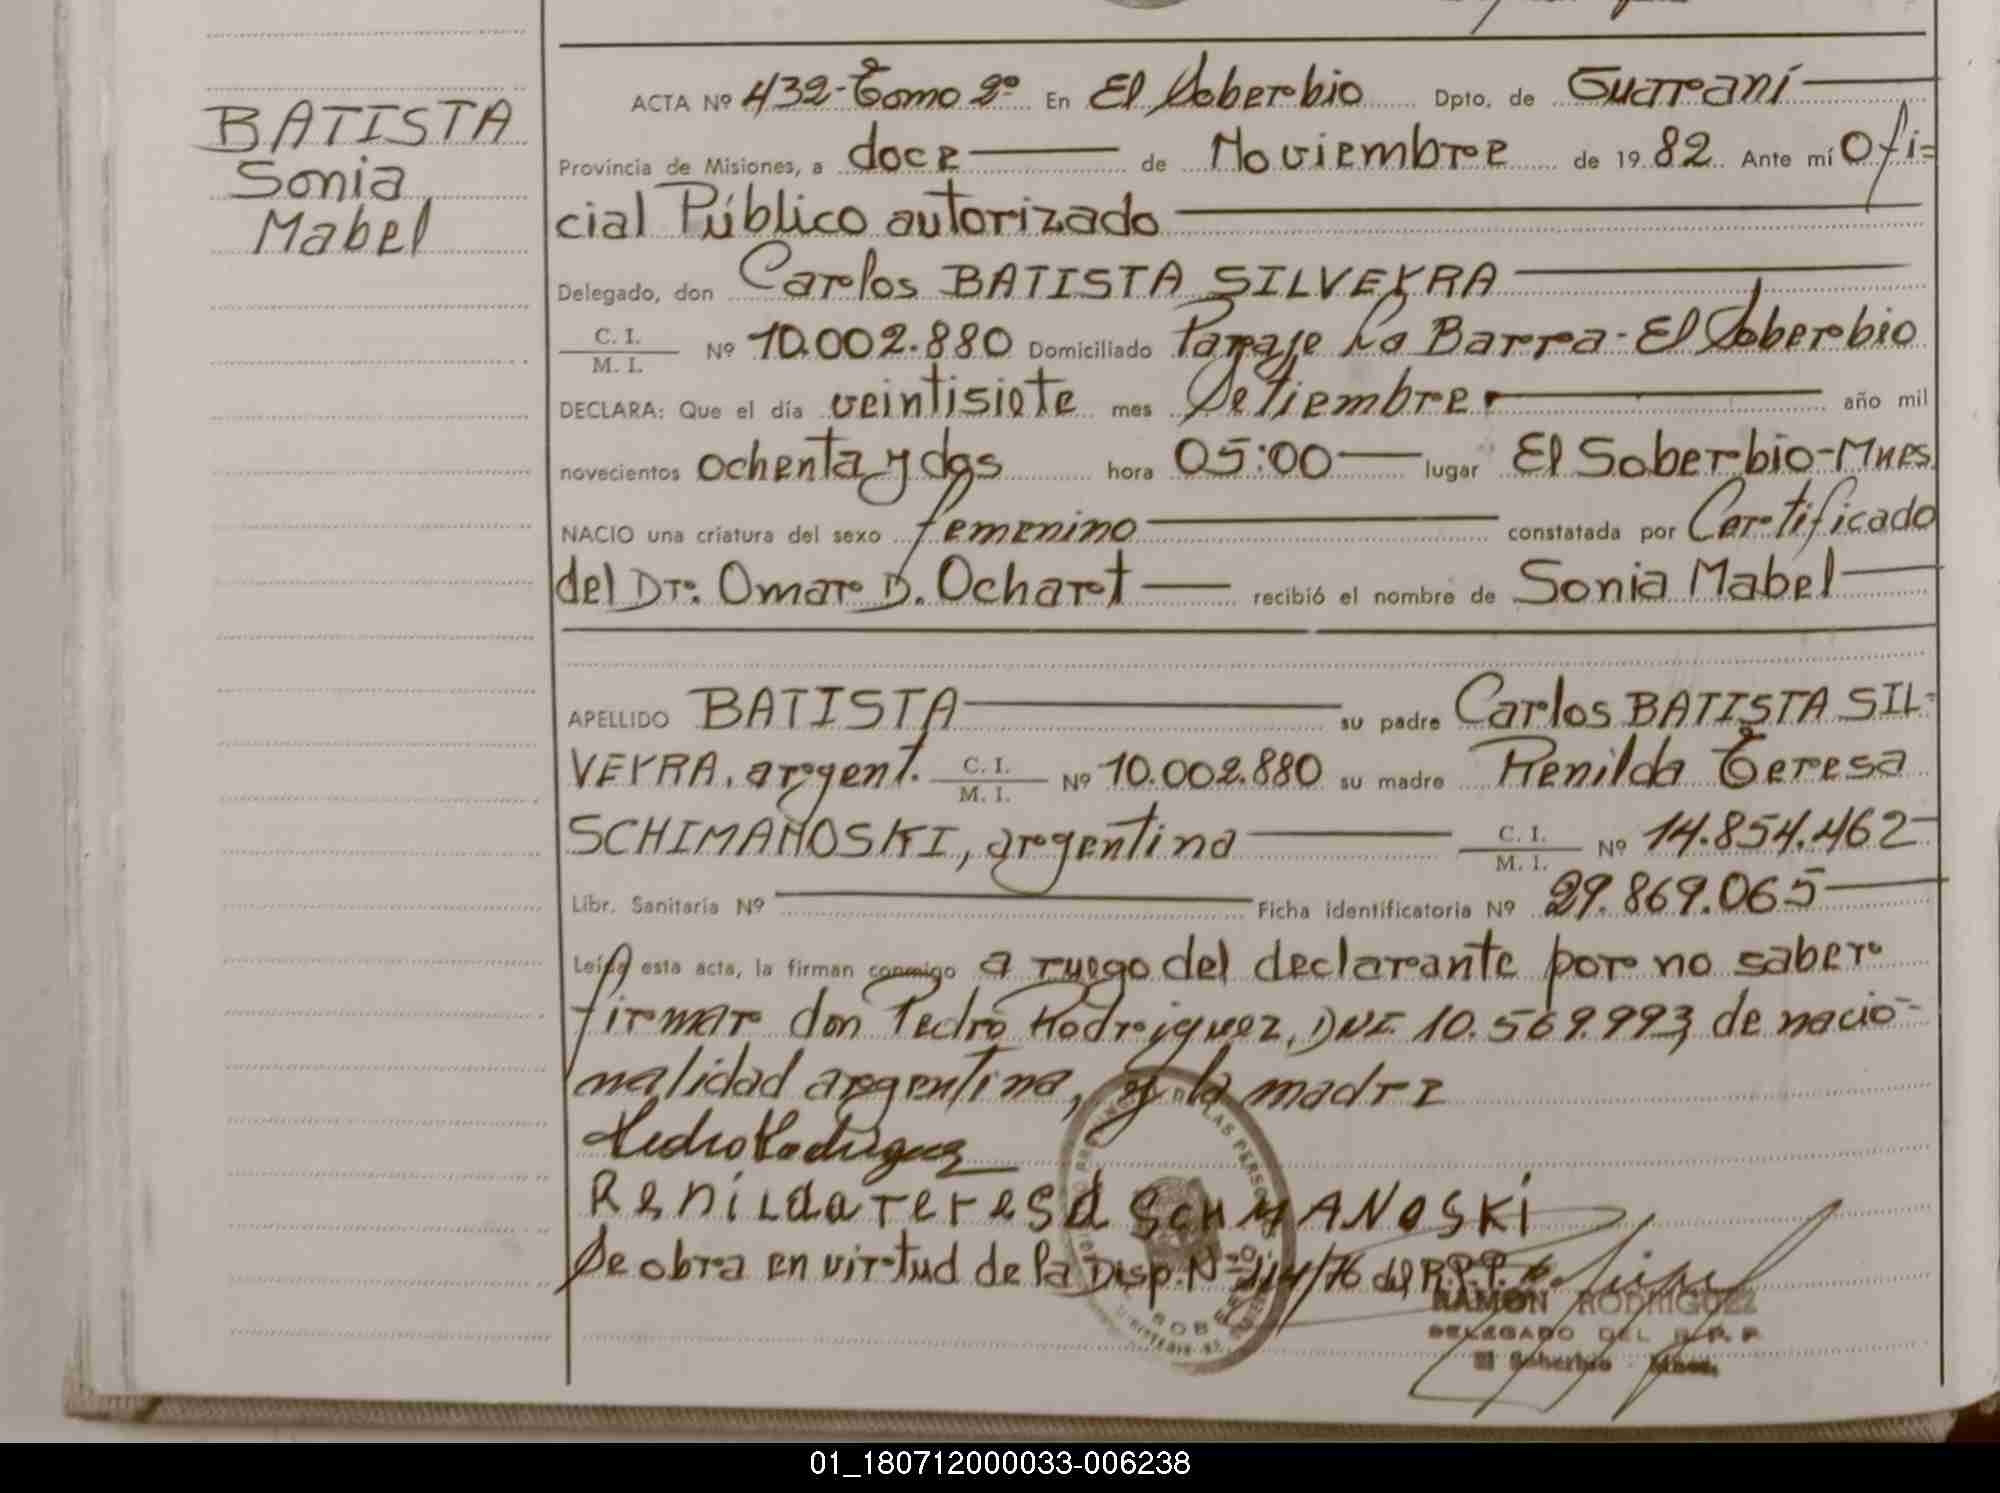 BATISTA
Sonia
Mabel
ACTA Nº 432-Tomo 2º En El Soberbio Dpto. de Guaraní
Provincia de Misiones, a doce de Noviembre de 1982 Ante mí Ofi=
cial Público autorizado
Delegado, don Carlos BATISTA SILVEYRA
C. I. / M. I. Nº 10.002.880 Domiciliado Paraje La Barra-El Soberbio
DECLARA: Que el día veintisiete mes Setiembre año mil
novecientos ochenta y dos hora 05:00 lugar El Soberbio-Mnes.
NACIO una criatura del sexo femenino constatada por Certificado
del Dr. Omar D. Ocharet recibió el nombre de Sonia Mabel
APELLIDO BATISTA su padre Carlos BATISTA SIL-
VEYRA, argent. C. I. / M. I. Nº 10.002.880 su madre Renilda Teresa
SCHIMANOSKI, argentina C. I. / M. I. Nº 14.854.462
Libr. Sanitaria Nº Ficha identificatoria Nº 29.869.065
Leída esta acta, la firman conmigo a ruego del declarante por no saber
firmar don Pedro Rodriguez, DNI. 10.569.993, de nacio-
nalidad argentina, y la madre
Pedro Rodriguez
Renilda Teresa SCHMANOSKi
Se obra en virtud de la Disp. Nº 114/76 del R.P.P.
RAMON RODRIGUEZ
DELEGADO DEL R. P. P.
El Soberbio - Mnes.
01_180712000033-006238